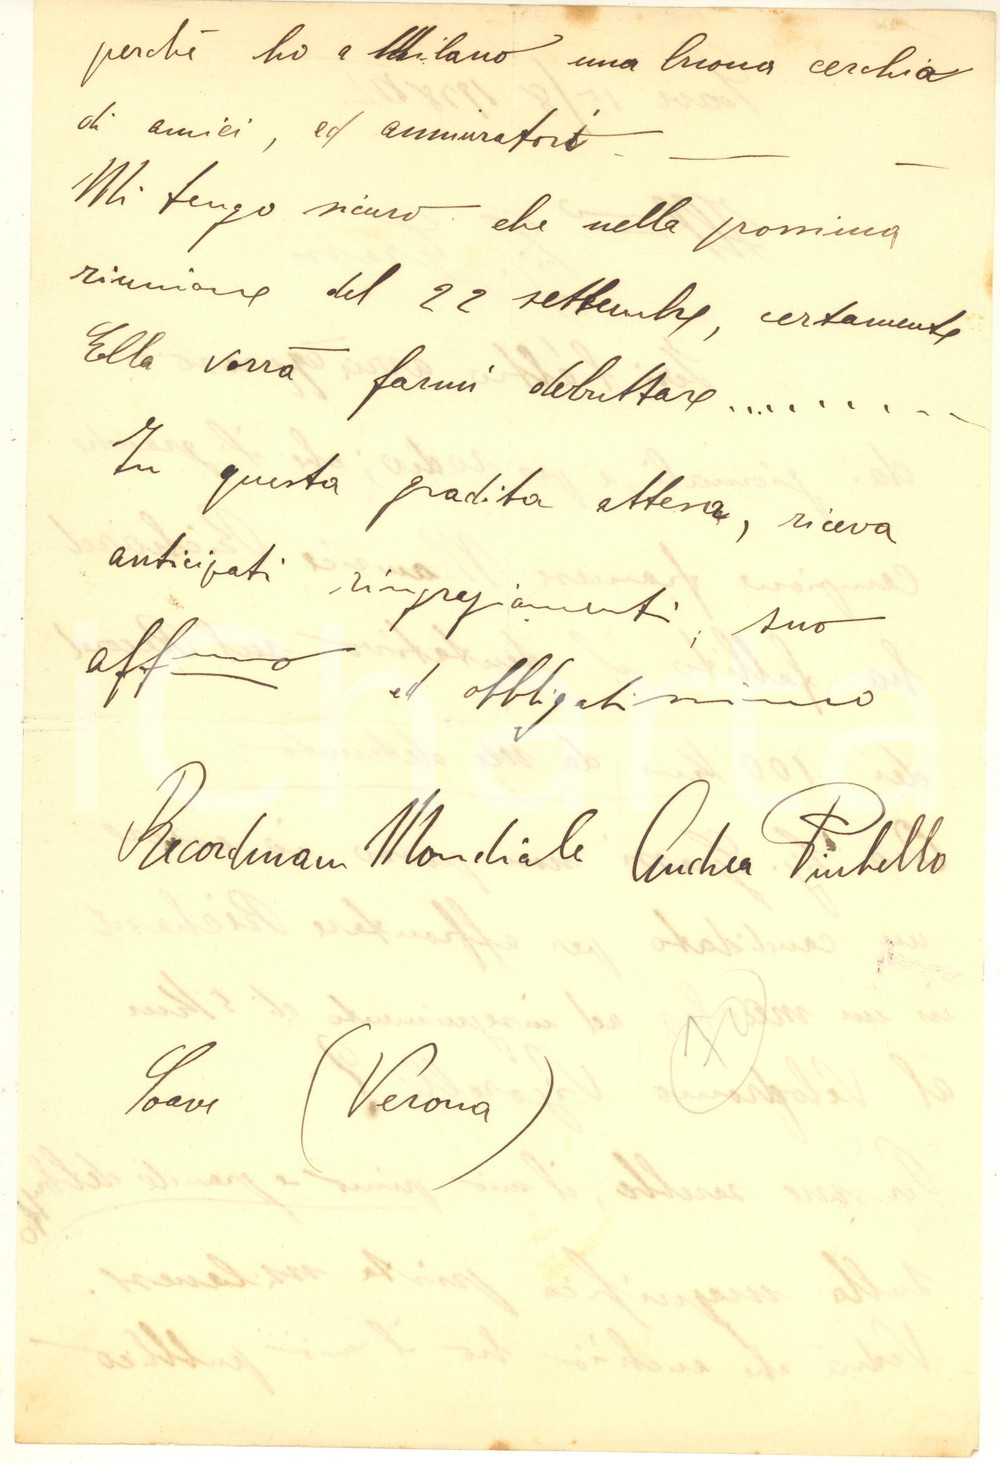 perchè ho a Milano una buona cerchia
di amici, ed ammiratori. — —
Mi tengo sicuro che nella prossima
riunione del 22 settembre, certamente
Ella vorrà farmi debuttare...........
In questa gradita attesa, riceva
anticipati ringraziamenti, suo
aff.mo ed obbligatissimo
Recordman Mondiale Andrea Pinbello
Soave (Verona)
iCharta